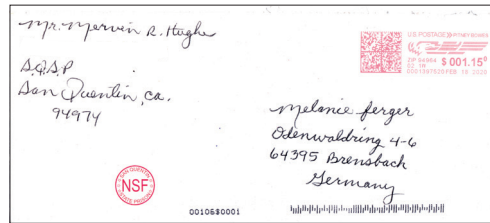 Mr. Mervin R. Hughe
S.Q.S.P
San Quentin, Ca.
94974
U.S. POSTAGE PITNEY BOWES
ZIP 94964 $ 001.15⁰
02 1R
FEB 18 2020
Melanie ferger
Odenwaldring 4-6
64395 Brensbach
Germany
SAN QUENTIN
NSF
STATE PRISON
0010530001